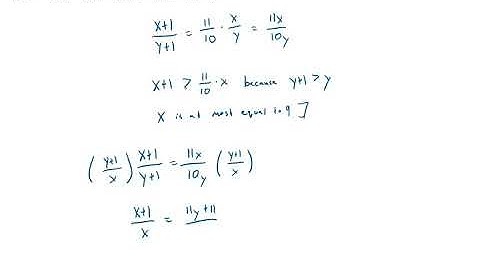 x+1/y+1 = 11/10 · x/y = 11x/10y
x+1 > 11/10 · x because y+1 > y
x is at most equal to 9 ]
(y+1/x) x+1/y+1 = 11x/10y (y+1/x)
x+1/x = 11y+11/